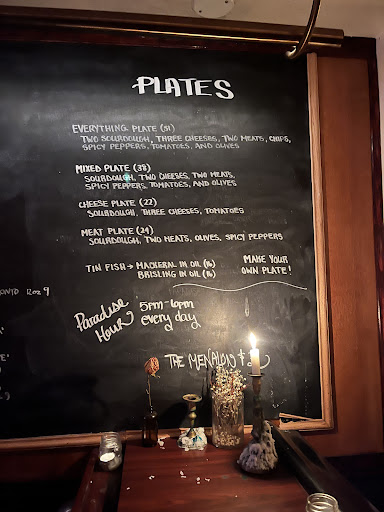 PLATES
EVERYTHING PLATE (51)
TWO SOURDOUGH, THREE CHEESES, TWO MEATS, CHIPS,
SPICY PEPPERS, TOMATOES, AND OLIVES
MIXED PLATE (38)
SOURDOUGH, TWO CHEESES, TWO MEATS,
SPICY PEPPERS, TOMATOES, AND OLIVES
CHEESE PLATE (22)
SOURDOUGH, THREE CHEESES, TOMATOES
MEAT PLATE (24)
SOURDOUGH, TWO MEATS, OLIVES, SPICY PEPPERS
TIN FISH → MACKERAL IN OIL (16)
BRISLING IN OIL (16)
MAKE YOUR
OWN PLATE!
12oz 9
Paradise
Hour
5pm-6pm
every day
THE